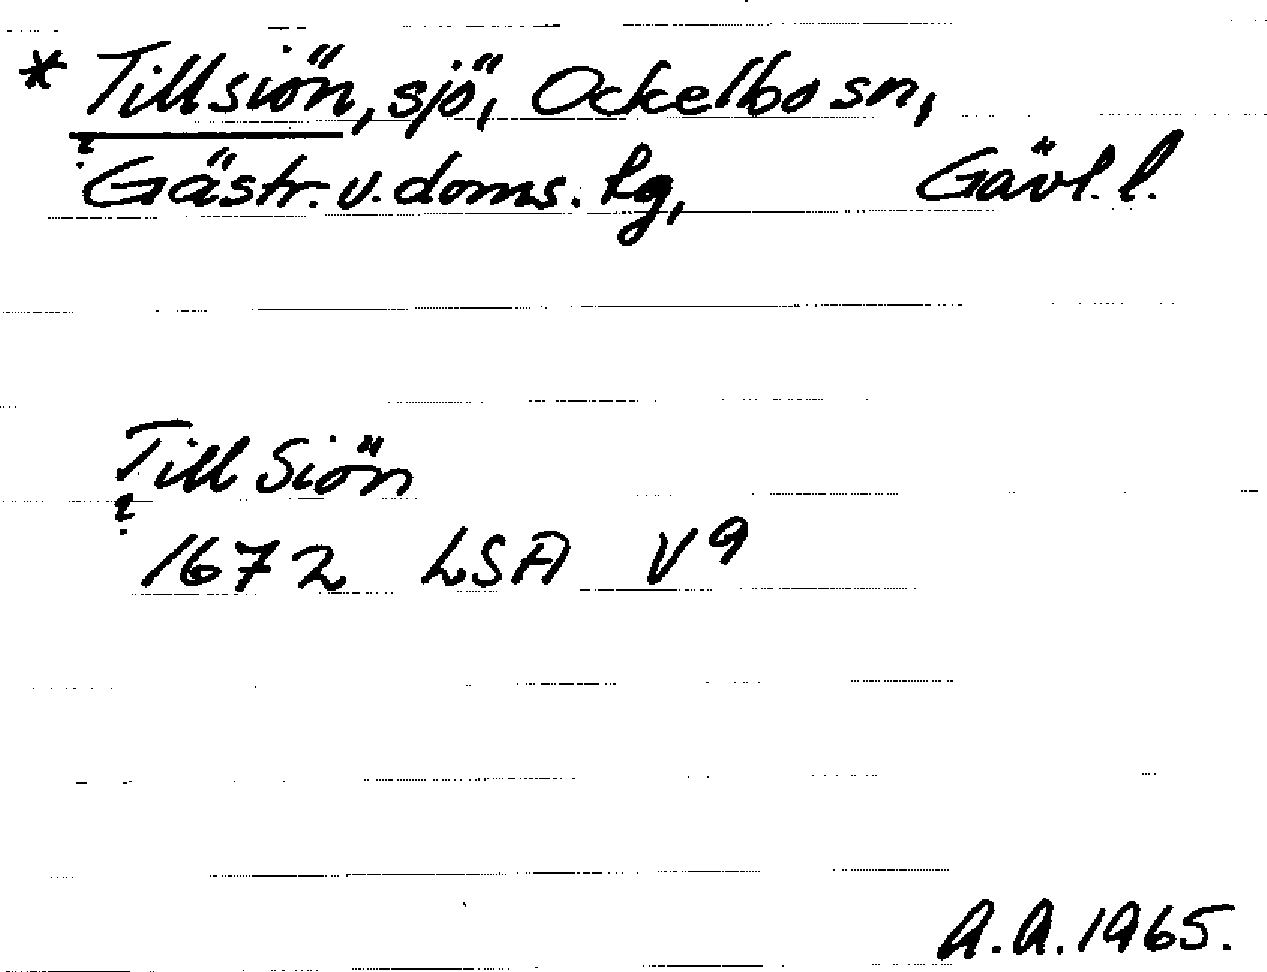 * Tillsiön, sjö, Ockelbo sn,
?
Gästr. v. doms. hg, Gävl. l.
Till Siön
?
1672 LSA V 9
A.A. 1965.